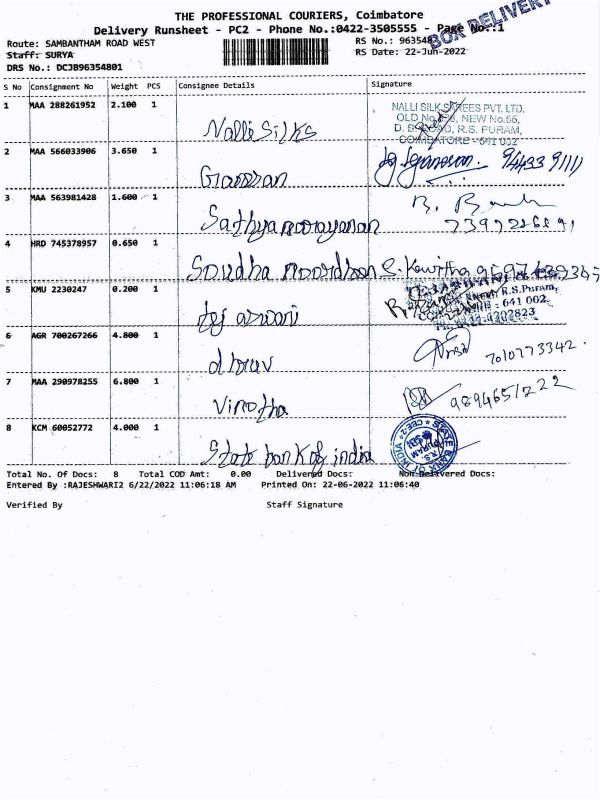 THE PROFESSIONAL COURIERS, Coimbatore
Delivery Runsheet - PC2 - Phone No.:0422-3505555 - Page No.:1
BOX DELIVERY
Route: SAMBANTHAM ROAD WEST RS No.:
Staff: SURYA RS Date: 22-Jun-2022
DRS No.: DCJB96354801
S No Consignment No Weight PCS Consignee Details Signature
1 MAA 288261952 2.100 1
NALLI SILK SAREES PVT. LTD.
NEW No.66,
R.S. PURAM,
COIMBATORE - 641 002
Nalli Silks
2 MAA 566033906 3.650 1
94433 91111
3 MAA 563981428 1.600 1
Sathyanarayanan
4 HRD 745378957 0.650 1
S. Kavitha
5 KMU 2230247 0.200 1
R.S.Puram,
641 002
6 AGR 700267266 4.800 1
dhruv 7010773342
7 MAA 290978255 6.800 1
Vinotha 9894651222
8 KCM 60052772 4.000 1
State bank of india
STATE BANK OF INDIA
R.S. PURAM
Total No. Of Docs: 8 Total COD Amt: 0.00 Delivered Docs: Non Delivered Docs:
Entered By :RAJESHWARI2 6/22/2022 11:06:18 AM Printed On: 22-06-2022 11:06:40
Verified By Staff Signature